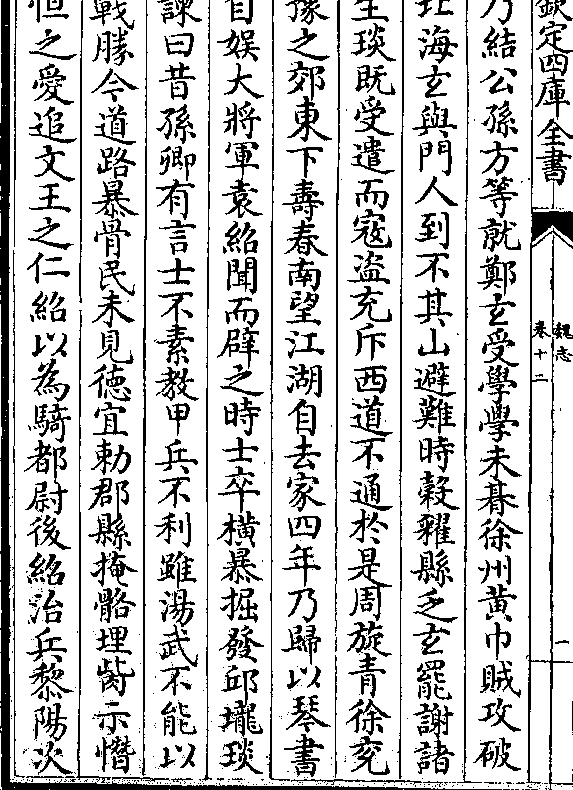 欽定四庫全書
魏志
卷十二
一
乃結公孫方等就鄭玄受學學未朞徐州黃巾賊攻破
北海玄與門人到不其山避難時穀糴縣乏玄罷謝諸
生琰既受遣而寇盜充斥西道不通於是周旋青徐兗
豫之郊東下壽春南望江湖自去家四年乃歸以琴書
自娛大將軍袁紹聞而辟之時士卒橫暴掘發邱壠琰
諫曰昔孫卿有言士不素教甲兵不利雖湯武不能以
戰勝今道路暴骨民未見德宜勅郡縣掩骼埋胔示憯
怛之愛追文王之仁紹以為騎都尉後紹治兵黎陽次